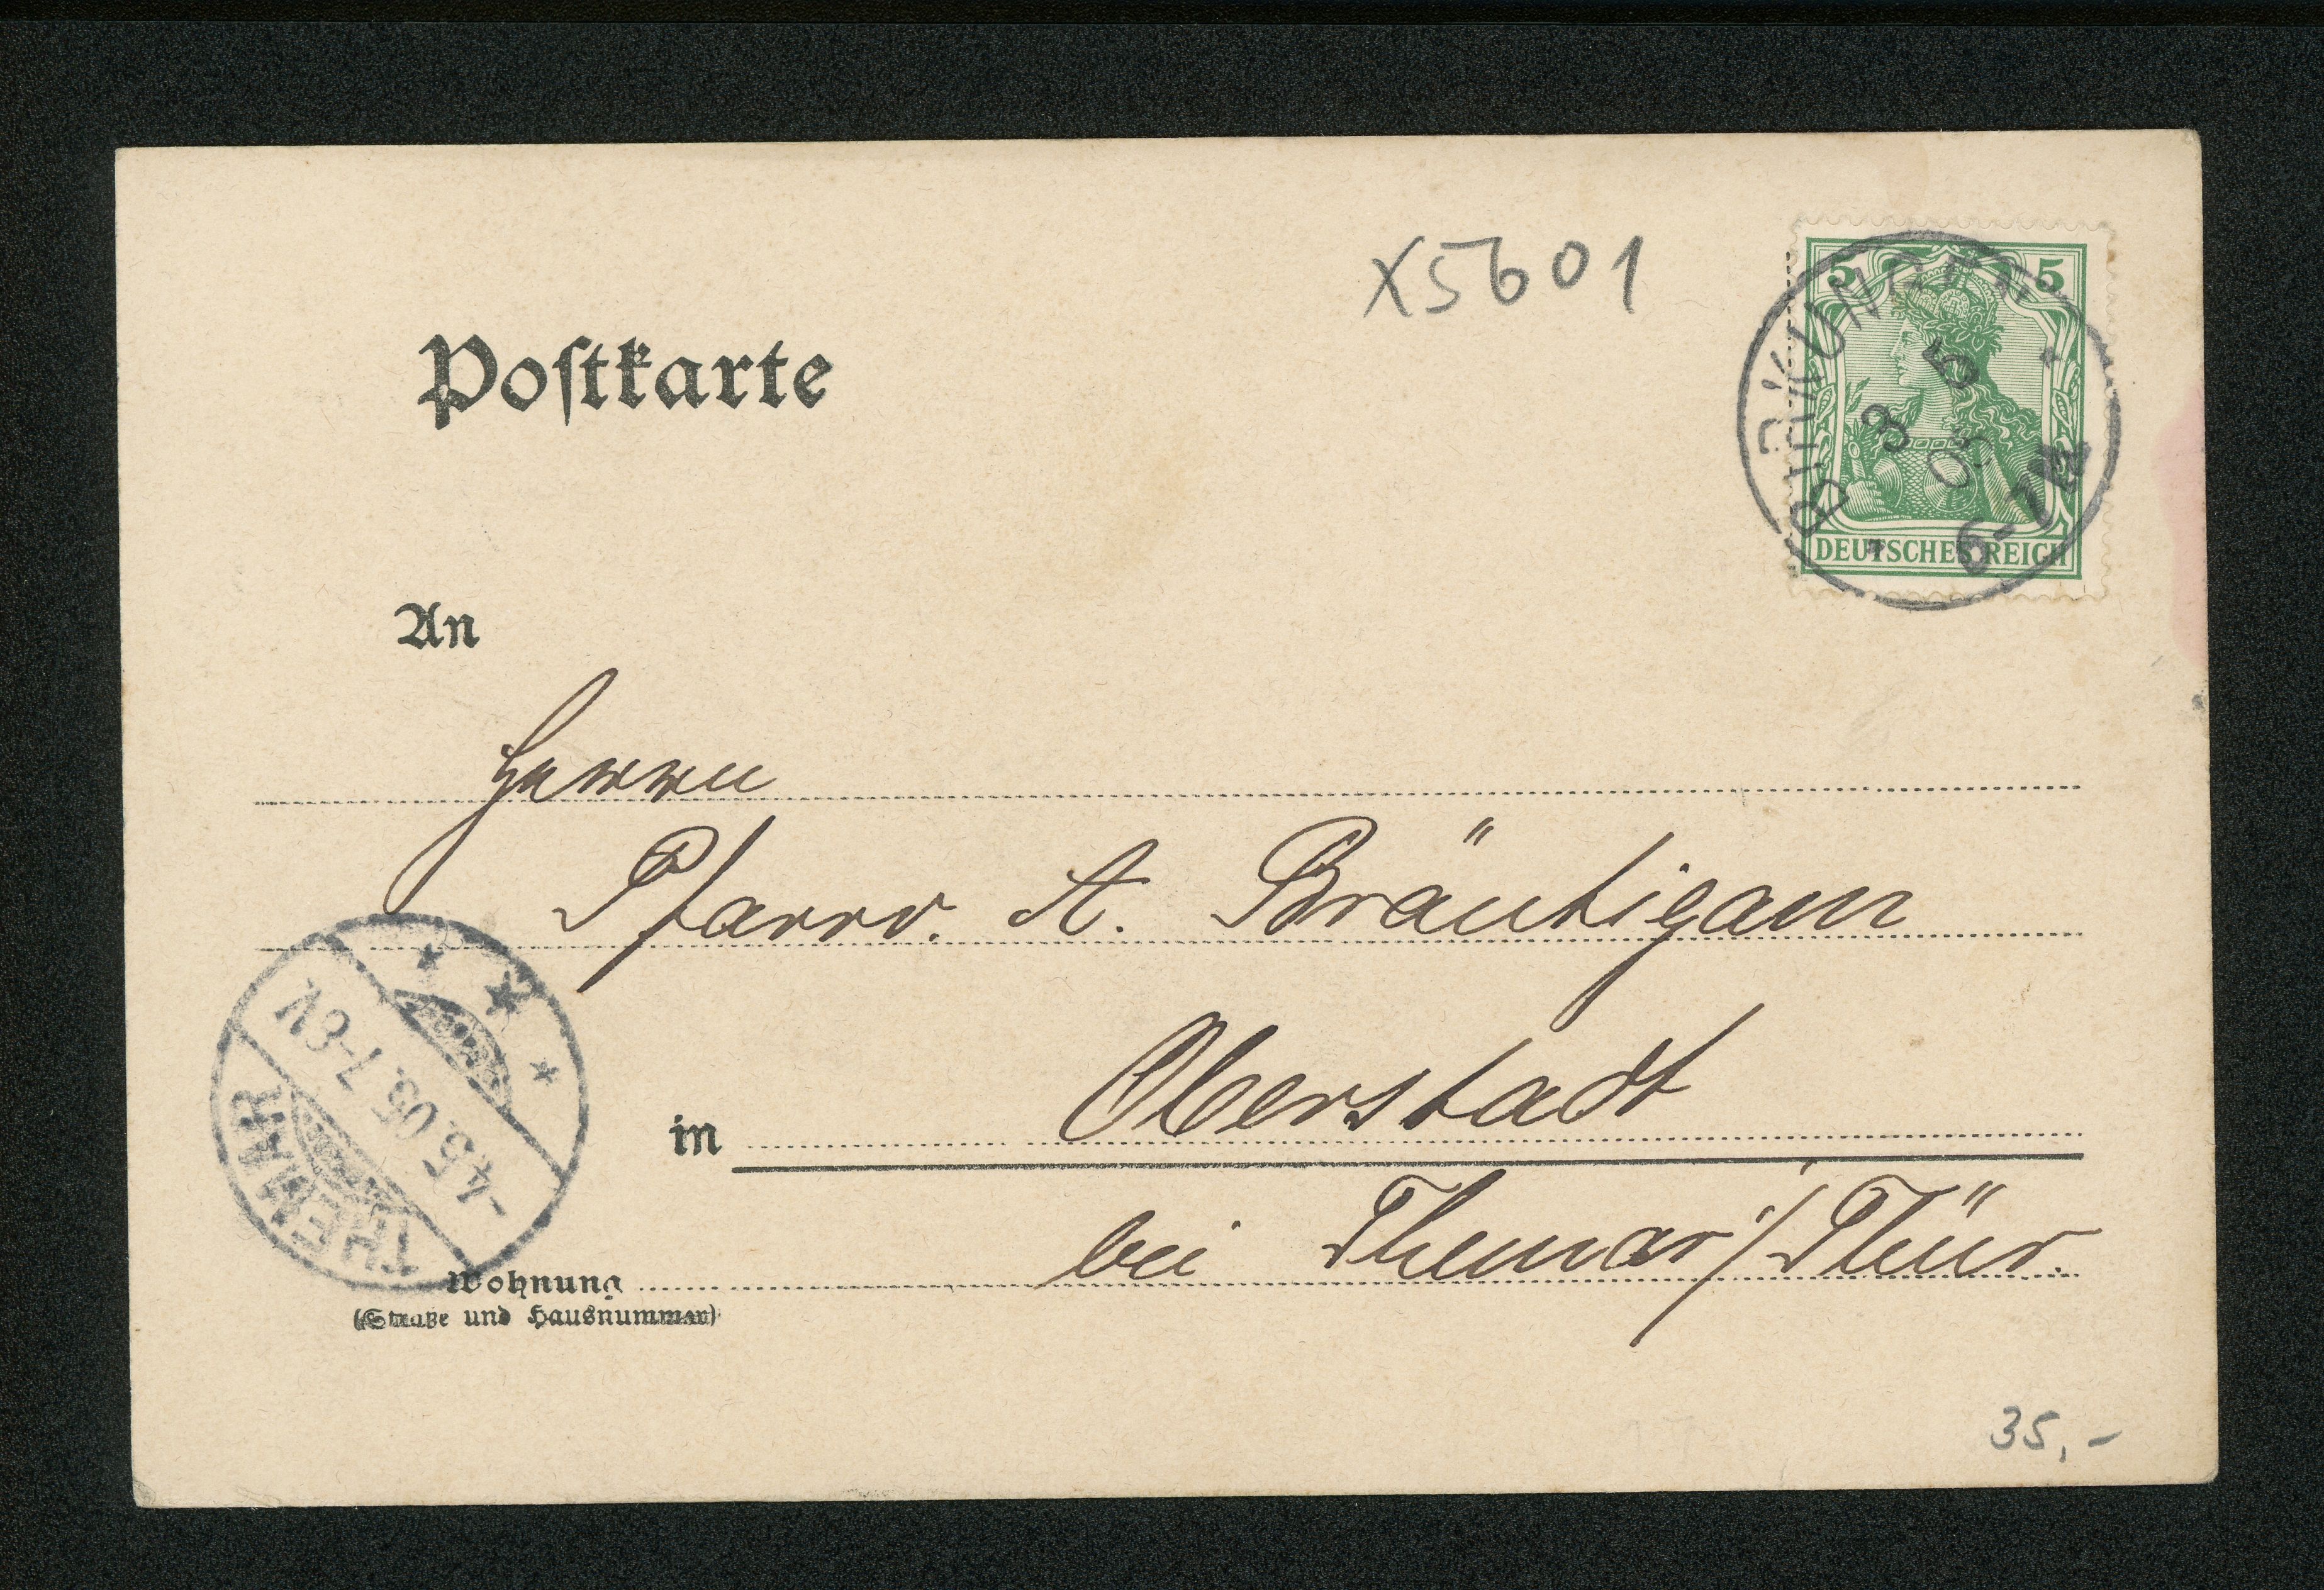 X5601
5 5
BIRKUNGEN
3 5
05
6-7N
DEUTSCHES REICH
Postkarte
An
Herrn
Pfarrv. A. Bräutigam
in Oberstadt
bei Themar i/Thür.
THEMAR
-4.5.05.7-8V
Wohnung
(Straße und Hausnummer)
35,-